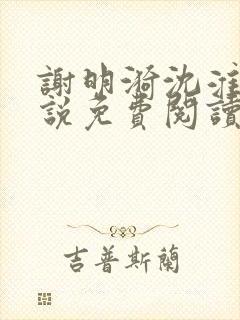 謝明漪沈淮
說免費閱讀
吉普斯蘭